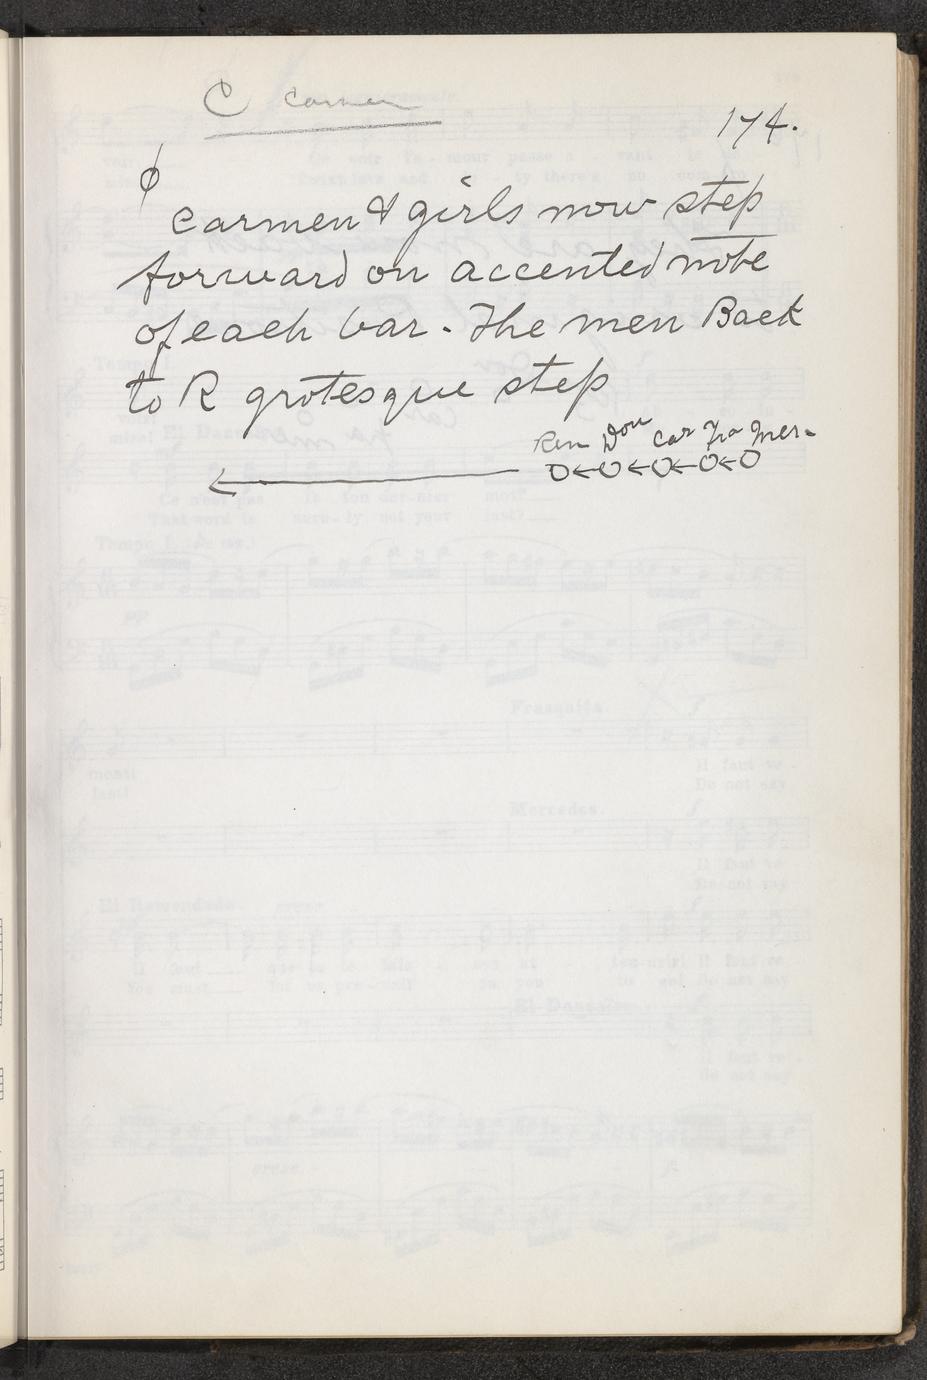 C Carmen
174.
ϕ
Carmen & girls now step
forward on accented note
of each bar - The men Back
to R grotesque step
Rem Don Car Fra Mer-